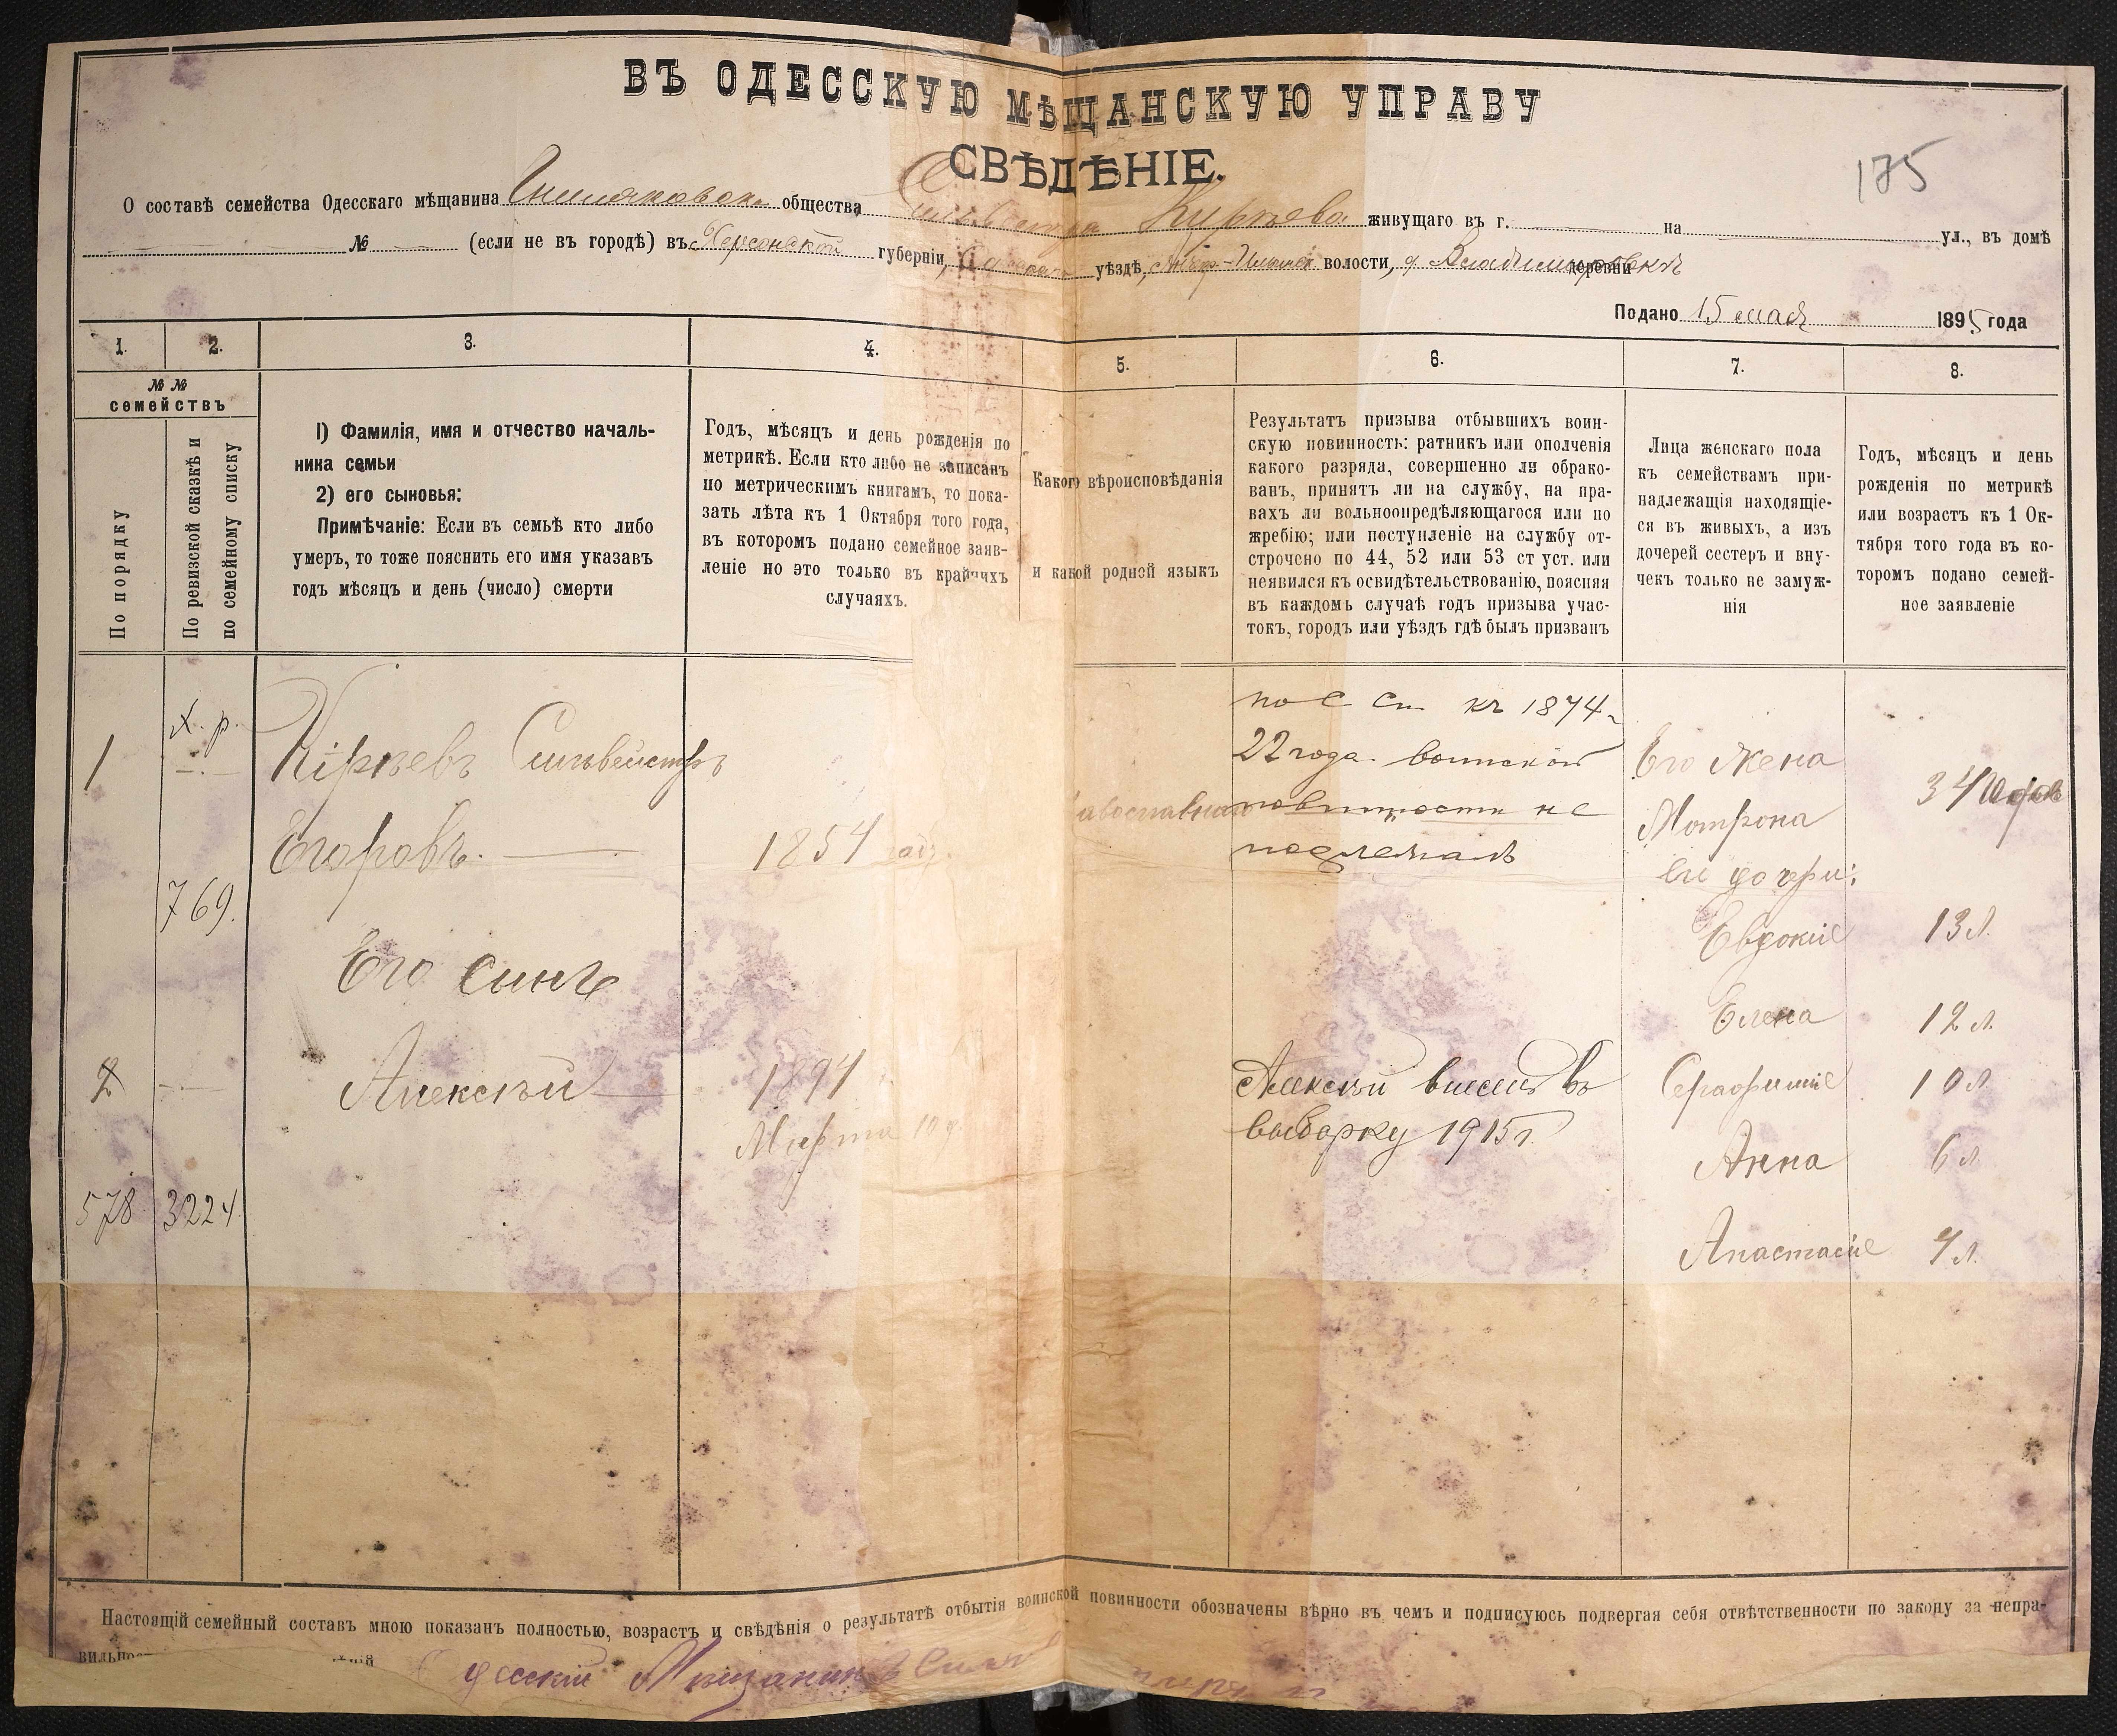 ВЪ ОДЕССКУЮ МѢЩАНСКУЮ УПРАВУ
СВѢДѢНІЕ.
175
О составѣ семейства Одесскаго мѣщанина общества Сильвестра Кирѣева живущаго въ г. на ул., въ домѣ
№ (если не въ городѣ) въ Херсонской губерніи, Одесскаго уѣздѣ, волости, д. Владимировкѣ деревни
Подано 15 мая 1895 года
1. 2. 3. 4. 5. 6. 7. 8.
№ №
семействъ
По порядку
По ревизской сказкѣ и
по семейному списку
1) Фамилія, имя и отчество началь-
ника семьи
2) его сыновья:
Примѣчаніе: Если въ семьѣ кто либо
умеръ, то тоже пояснить его имя указавъ
годъ мѣсяцъ и день (число) смерти
Годъ, мѣсяцъ и день рожденія по
метрикѣ. Если кто либо не записанъ
по метрическимъ книгамъ, то пока-
зать лѣта къ 1 Октября того года,
въ которомъ подано семейное заяв-
леніе но это только въ крайнихъ
случаяхъ.
Какого вѣроисповѣданія
и какой родной языкъ
Результатъ призыва отбывшихъ воин-
скую повинность: ратникъ или ополченія
какого разряда, совершенно ли обрако-
ванъ, принятъ ли на службу, на пра-
вахъ ли вольноопредѣляющагося или по
жребію; или поступленіе на службу от-
строчено по 44, 52 или 53 ст уст. или
неявился къ освидѣтельствованію, поясняя
въ каждомъ случаѣ годъ призыва учас-
токъ, городъ или уѣздъ гдѣ былъ призванъ
Лица женскаго пола
къ семействамъ при-
надлежащія находящіе-
ся въ живыхъ, а изъ
дочерей сестеръ и вну-
чекъ только не замуж-
нія
Годъ, мѣсяцъ и день
рожденія по метрикѣ
или возрастъ къ 1 Ок-
тября того года въ ко-
торомъ подано семей-
ное заявленіе
х. р.
1
Кірѣевъ Сильвейстръ
Егоровъ.
1854 годъ.
авославная
по С Сп. къ 1874 г
22 года воинской
повинности не
подлежалъ
Его Жена
Мотрона
34 годов
769.
Ею дочери:
Евдокіе
13 л.
Его синъ
Елена
12 л.
2
Алексѣй
1894
Марта 10 д.
Алексѣй внесенъ въ
выборку 1915 г.
Серафиміе
10 л.
Анна
6 л
578 3224.
Анастасіе
4 л.
Настоящій семейный составъ мною показанъ полностью, возрастъ и свѣдѣнія о результатѣ отбытія воинской повинности обозначены вѣрно въ чемъ и подписуюсь подвергая себя отвѣтственности по закону за непра-
Одесскій Мѣщанинъ